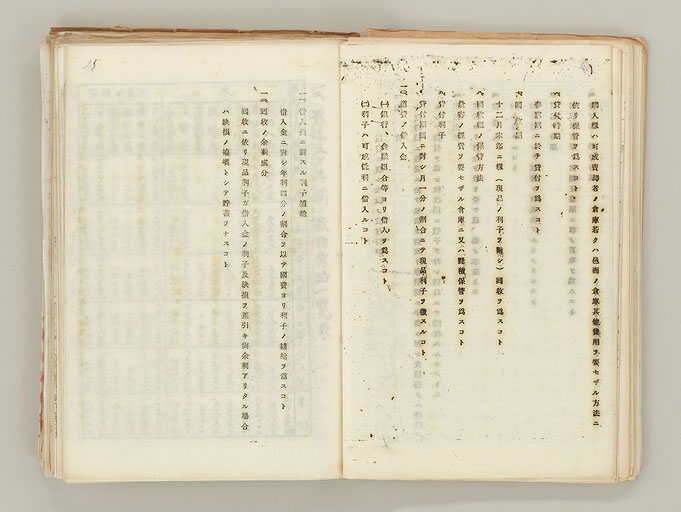 購入糧ハ可成賣却者ノ倉庫若クハ邑面ノ倉庫其他費用ヲ要セザル方法ニ
依リ保管ヲ爲スコト
貸付時期
春窮期ニ於テ貸付ヲ爲スコト
回收期
十二月末迄ニ糧(現品ノ利子ヲ附シ)回收ヲ爲スコト
回收糧ノ保管方法
最寄ノ經費ヲ要セザル倉庫ニ又ハ野積保管ヲ爲スコト
貸付利子
貸付期間ニ對シ月一分ノ割合ニテ現品利子ヲ徵スルコト
資ノ借入金
(一)銀行、金融組合等ヨリ借入ヲ爲スコト
(二)利子ハ可成低利ニ借入ルコト
一、借入金ニ對スル利子補給
借入金ニ對シ年利四分ノ割合ヲ以テ國費ヨリ利子ノ補給ヲ爲スコト
一、回收ノ余剩處分
回收ニ依リ現品利子ガ借入金ノ利子及缺損ヲ差引キ尙余剩アリタル場合
ハ缺損ノ補塡トシテ貯蓄ヲナスコト